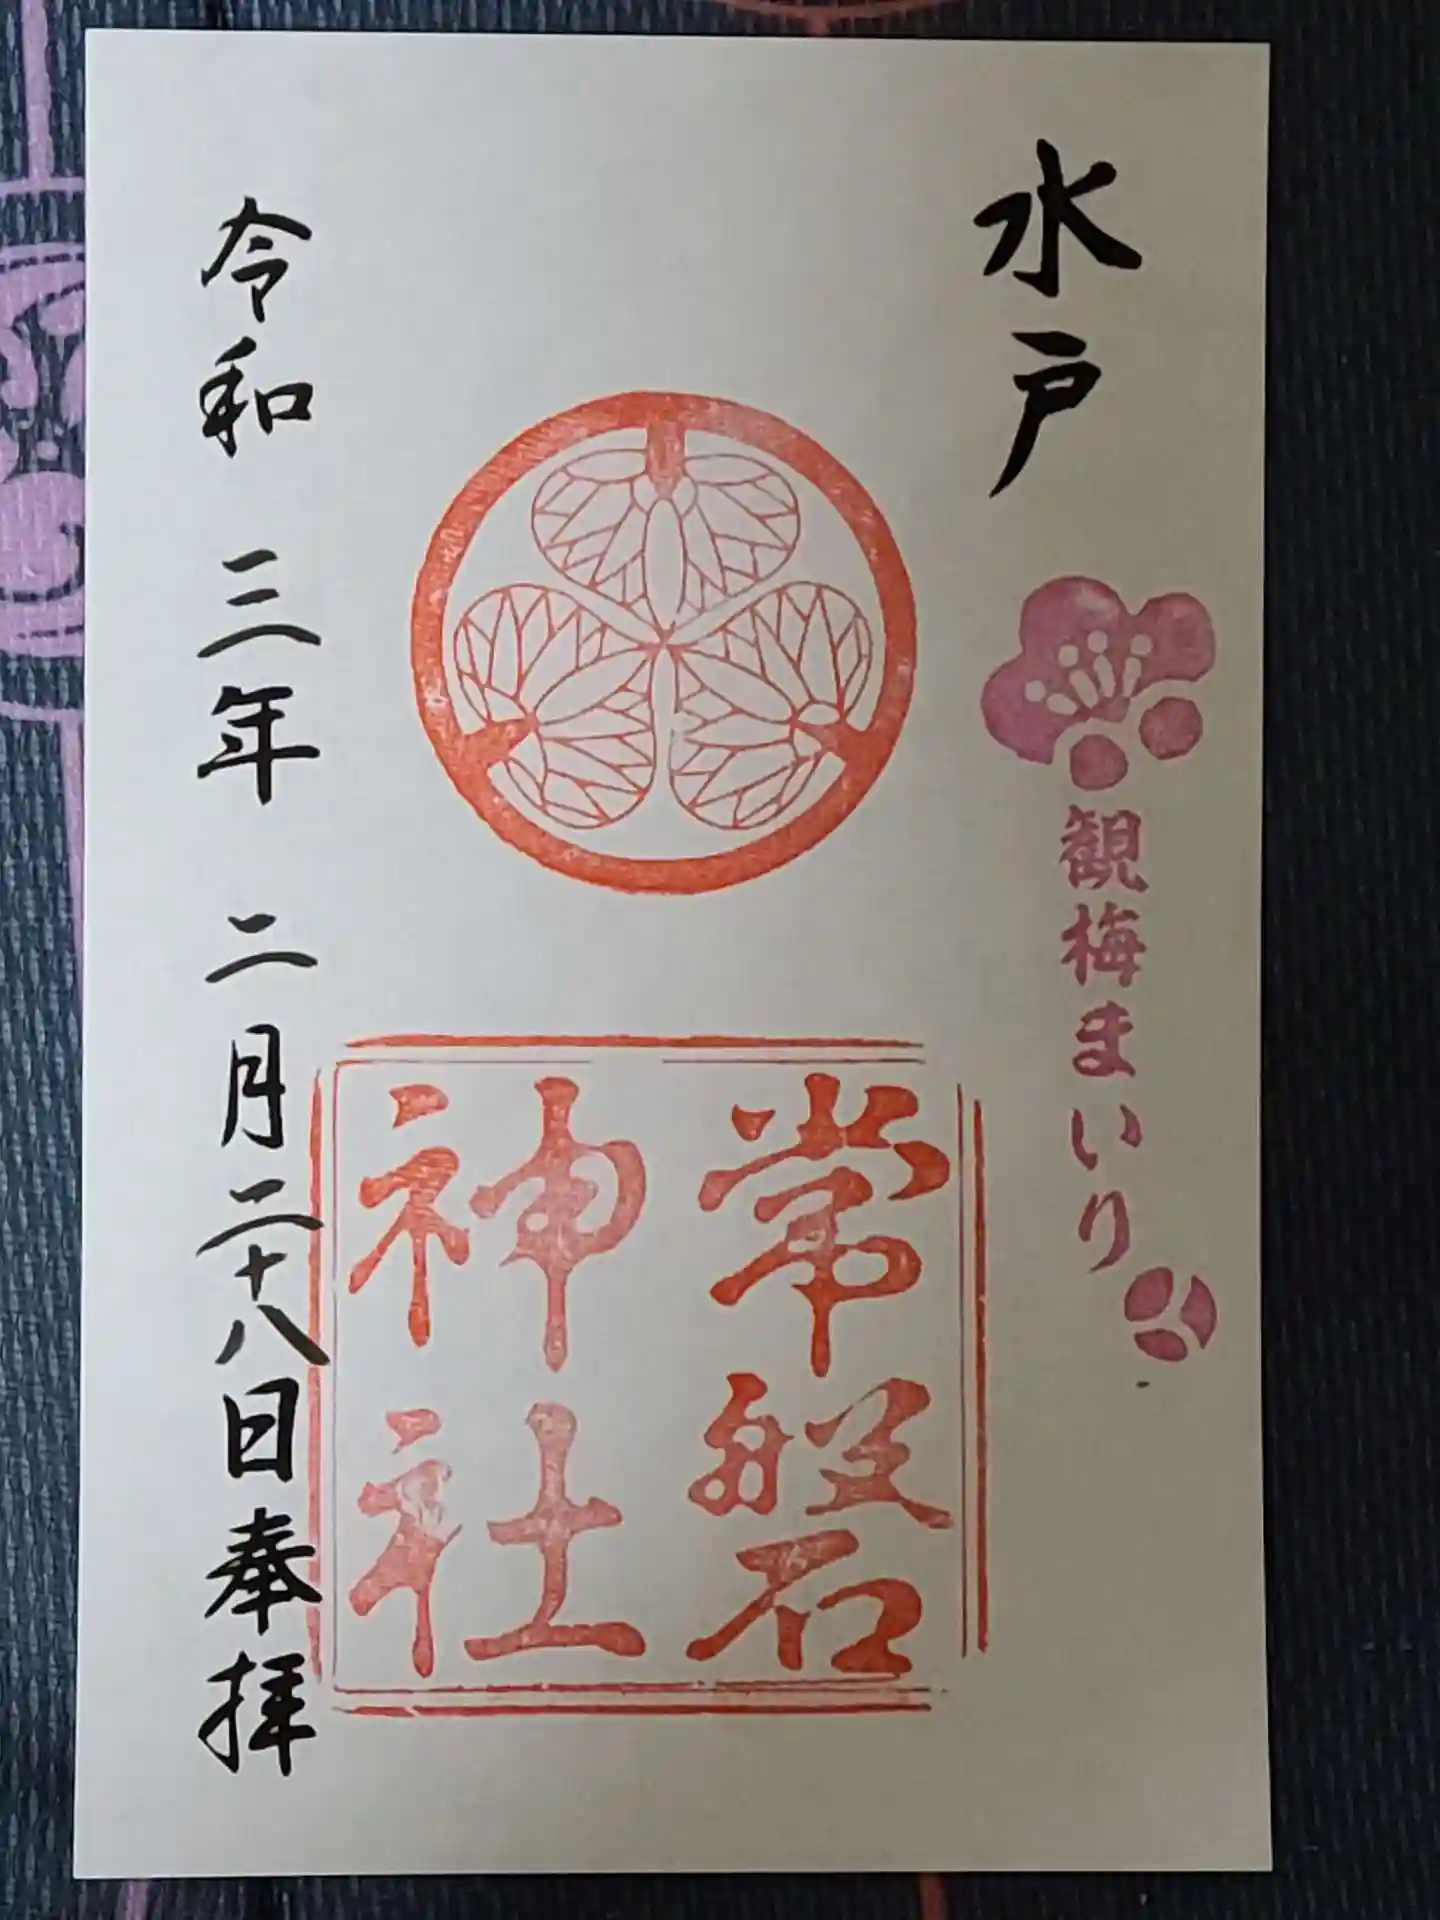 水戸
観梅まいり
常磐
神社
令和三年二月二十八日奉拝